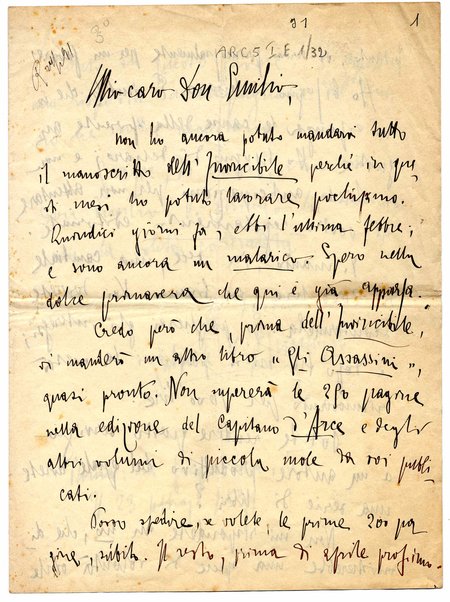 31 1
3°
ARC 5 I E 1/32
Mio caro Don Emilio,
non ho ancora potuto mandarvi tutto
il manoscritto dell'Invincibile perchè in que
sti mesi ho potuto lavorare pochissimo.
Quindici giorni fa, ebbi l'ultima febbre;
e sono ancora un malarico. Spero nella
dolce primavera che qui è già apparsa.
Credo però che, prima dell'Invincibile,
vi manderò un altro libro "Gli Assassini",
quasi pronto. Non supererà le 250 pagine
nella edizione del Capitano d'Arce e degli
altri volumi di piccola mole da voi pubbli
cati.
Posso spedire, se volete, le prime 200 pa
gine, subito. Il resto, prima di aprile prossimo.